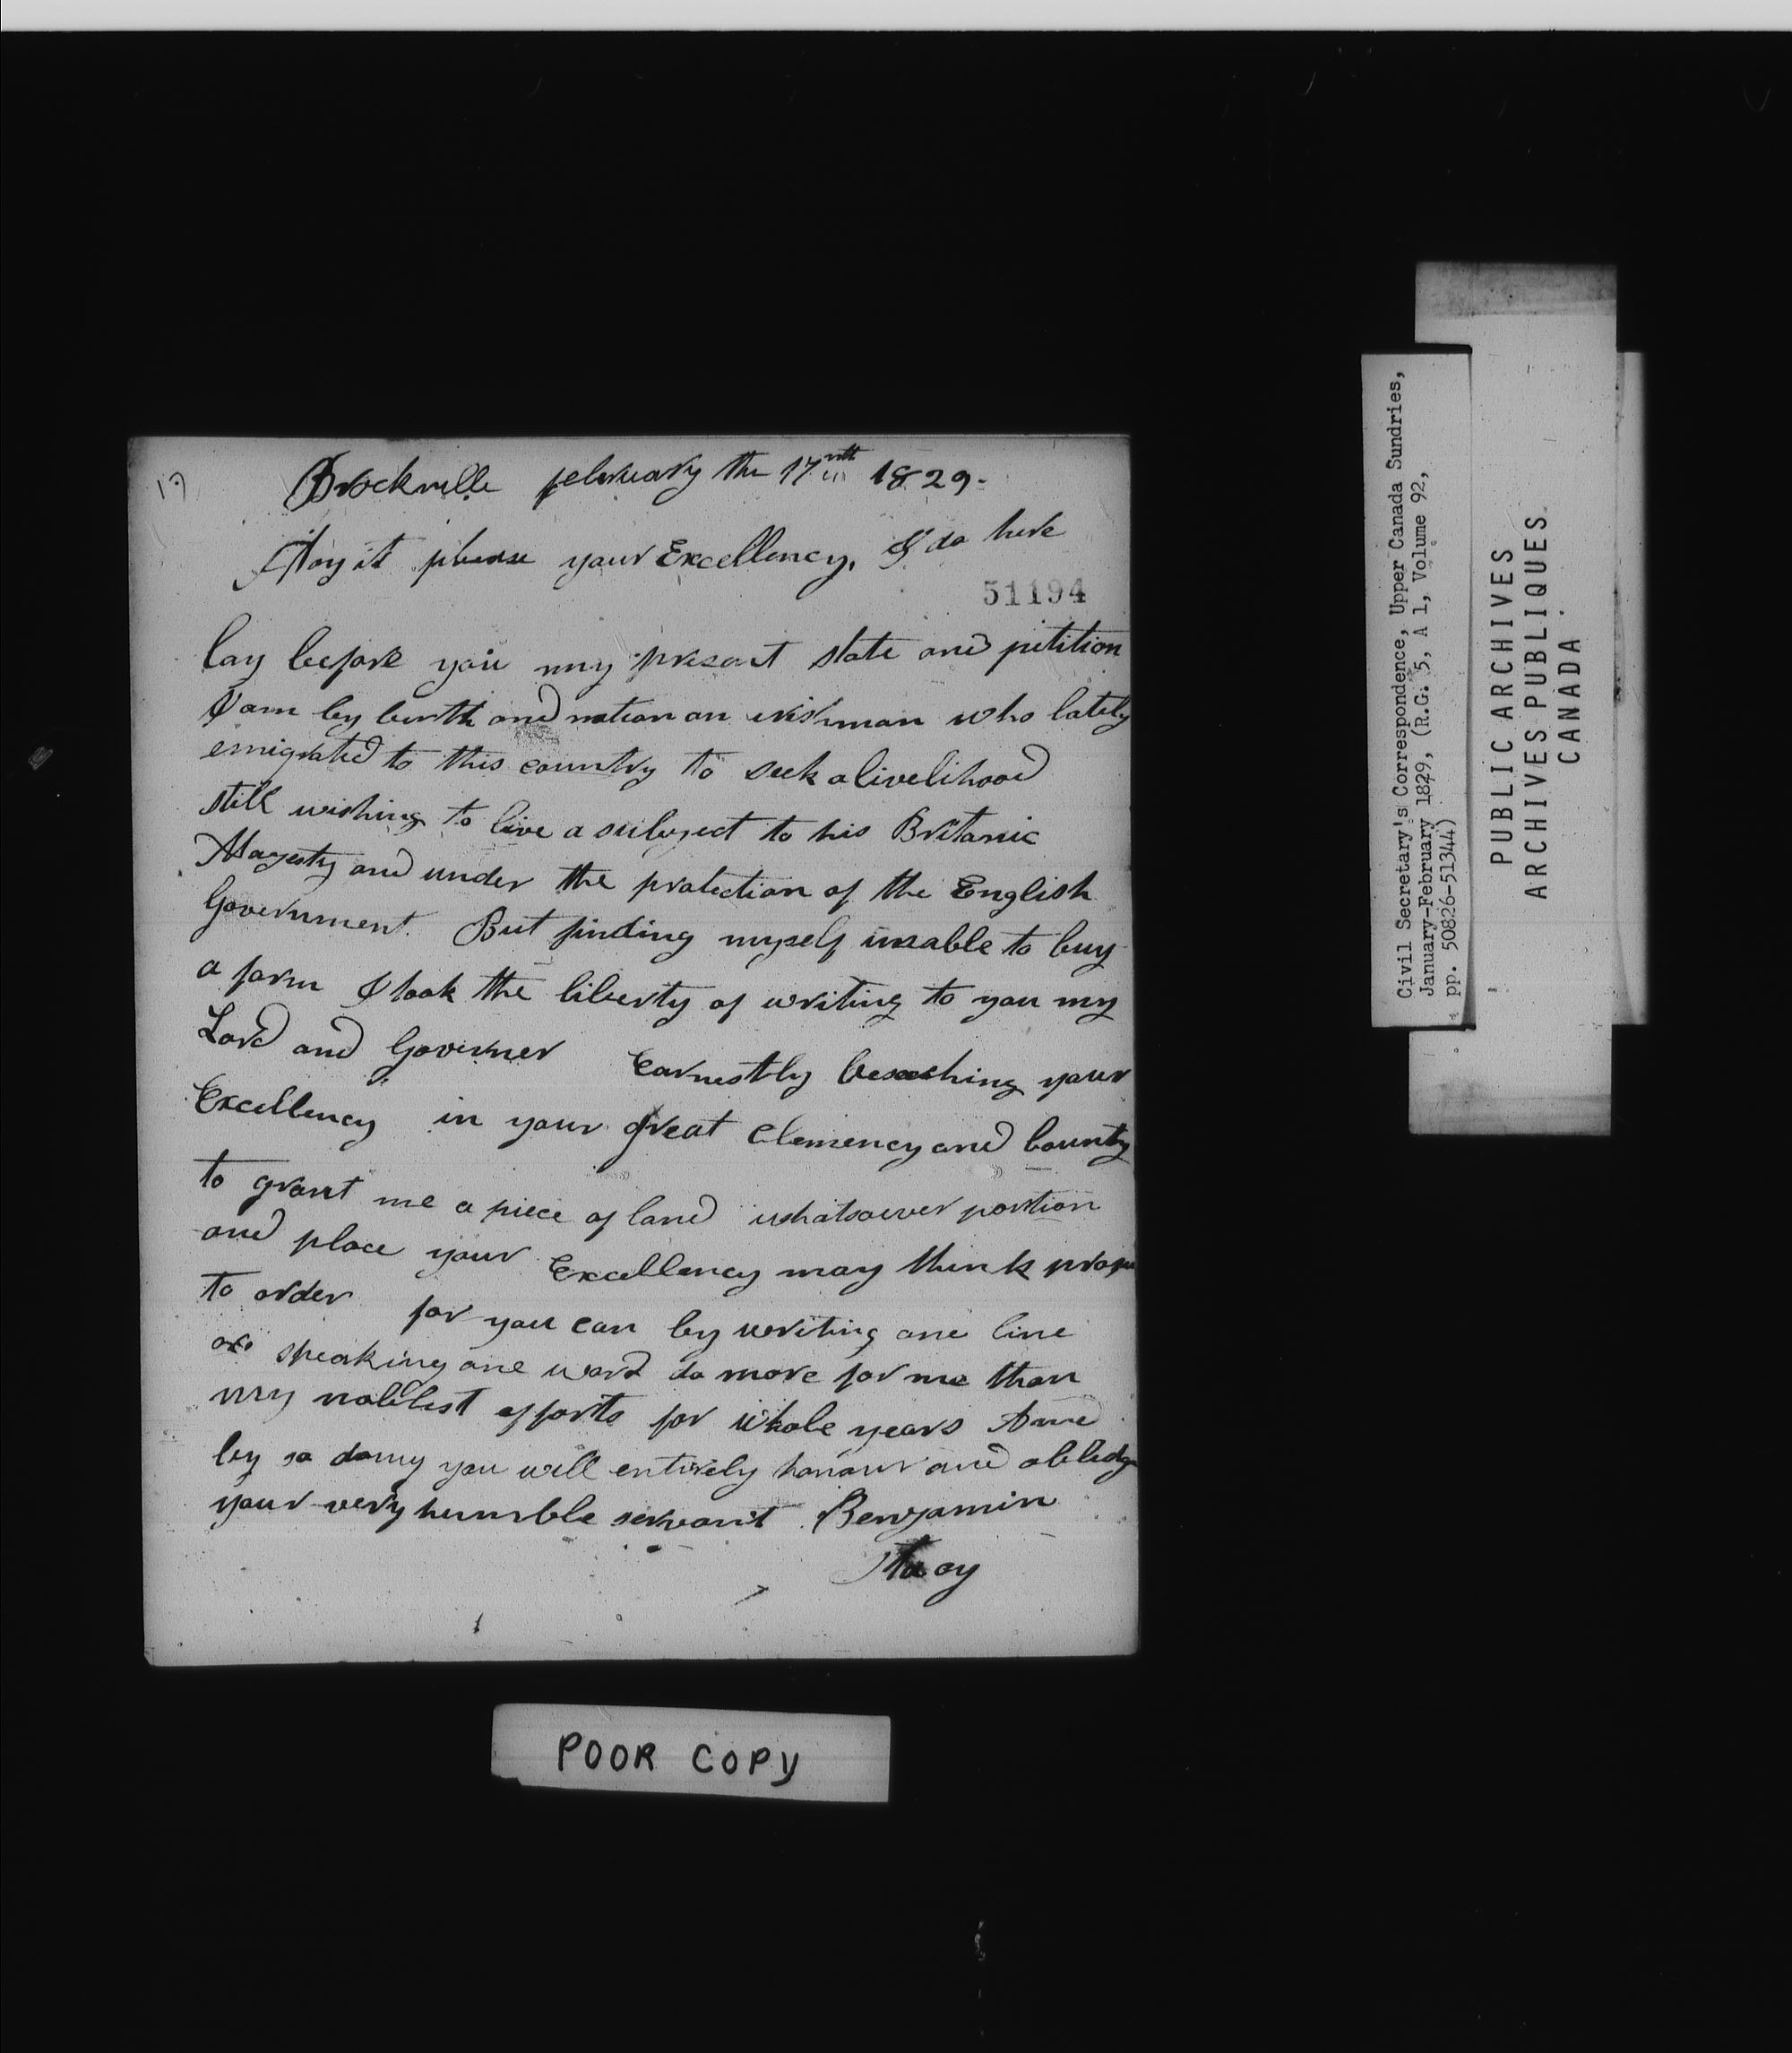 Brockville february the 17nth 1829.
May it please your Excellency, I do here
51194
lay before you my present state and petition
I am by birth and nation an irishman who lately
emigrated to this country to seek a livelihood
still wishing to live a subject to his Britanic
Magesty and under the protection of the English
Government. But finding myself unable to buy
a farm I took the liberty of writing to you my
Lord and Governer Earnestly beseeching your
Excellency in your great Clemency and bounty
to grant me a piece of land whatsoever portion
and place your Excellency may think proper
to order for you can by writing one line
or speaking one word do more for me than
my noblest efforts for whole years And
by so doing you will entirely honour and obledge
your very humble servant Benjamin
POOR COPY
Civil Secretary's Correspondence, Upper Canada Sundries,
January-February 1829, (R.G. 5, A 1, Volume 92,
pp. 50826-51344)
PUBLIC ARCHIVES
ARCHIVES PUBLIQUES
CANADA